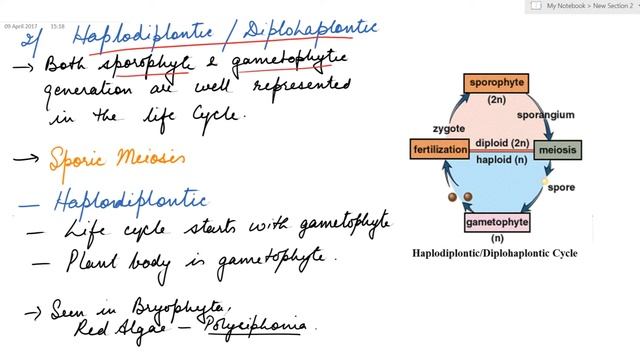 My Notebook > New Section 2
09 April 2017 15:18
2/ Haplodiplontic / Diplohaplontic
→ Both sporophyte & gametophytic
generation are well represented
in the life Cycle.
→ Sporic Meiosis
— Haplodiplontic
— Life cycle starts with gametophyte
— Plant body is gametophyte.
→ Seen in Bryophyta,
Red Algae — Polysiphonia.
sporophyte
(2n)
sporangium
zygote
fertilization
diploid (2n)
haploid (n)
meiosis
spore
gametophyte
(n)
Haplodiplontic/Diplohaplontic Cycle